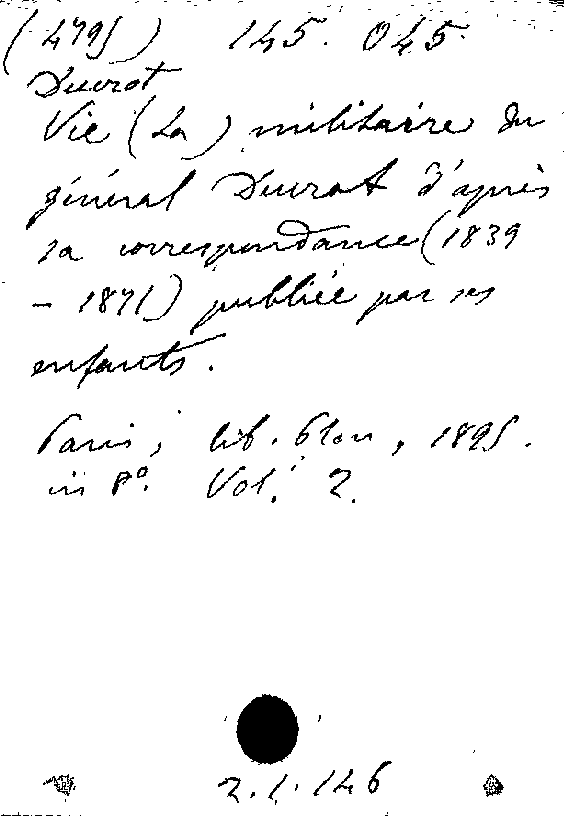 (4795) 145.045.
Ducrot
Vie (La) militaire du
général Ducrot d'après
sa correspondance (1839
- 1871) publiée par ses
enfants.
Paris, lib. Plon, 1895.
in 8º. Vol. 2.
2.1.146